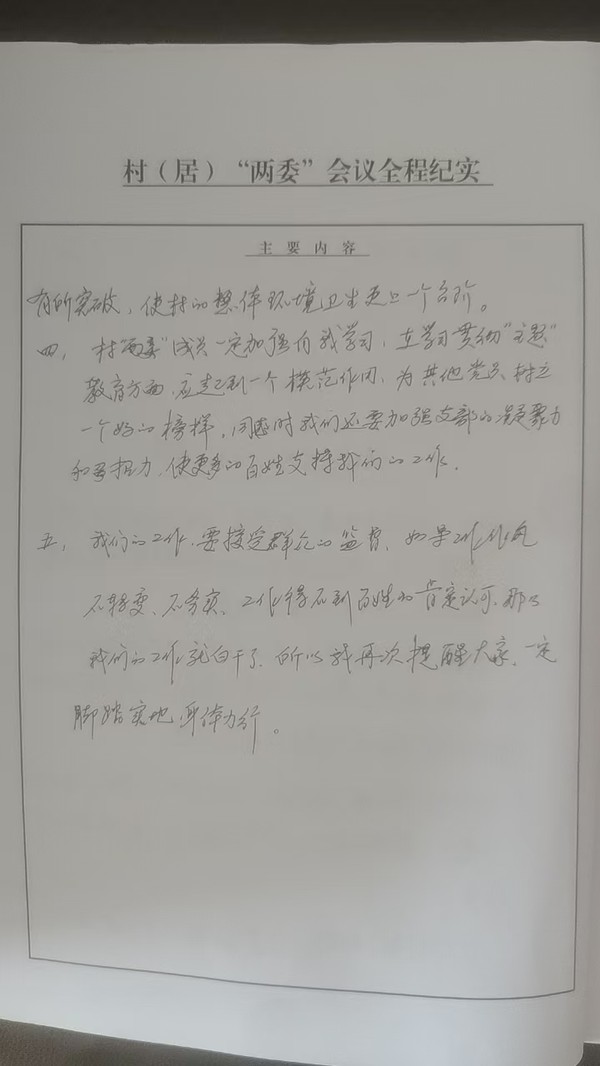 村（居）“两委”会议全程纪实
主 要 内 容
有所突破，使村的整体环境卫生更上一个台阶。
四，村“两委”成员一定加强自我学习，在学习贯彻“主题”
教育方面，应起到一个模范作用，为其他党员树立
一个好的榜样，同时我们还要加强支部的凝聚力
和号召力，使更多的百姓支持我们的工作。
五，我们的工作，要接受群众的监督，如果工作作风
不转变、不务实、工作得不到百姓的肯定认可，那么
我们的工作就白干了，所以我再次提醒大家，一定
脚踏实地 身体力行。